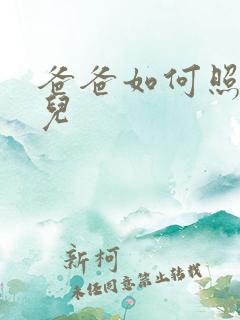 爸爸如何照
兒
新柯
未经同意禁止转载